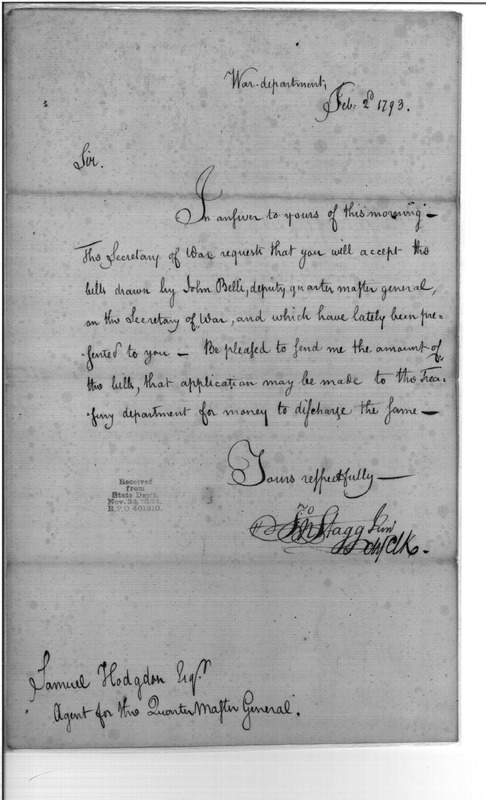 War-department,
Feb: 2d 1793.
Sir.
In answer to yours of this morning —
The Secretary of War requests that you will accept the
bills drawn by John Belli, deputy quarter master general,
on the Secretary of War, and which have lately been pre=
sented to you — Be pleased to send me the amount of
the bills, that application may be made to the Trea=
sury department for money to discharge the same —
Yours respectfully —
Received
from
State Dept.
Nov. 24,
R.P.O. 401310.
Jno Stagg Junr
Chf Clk.
Samuel Hodgdon Esqr
Agent for the Quarter Master General.